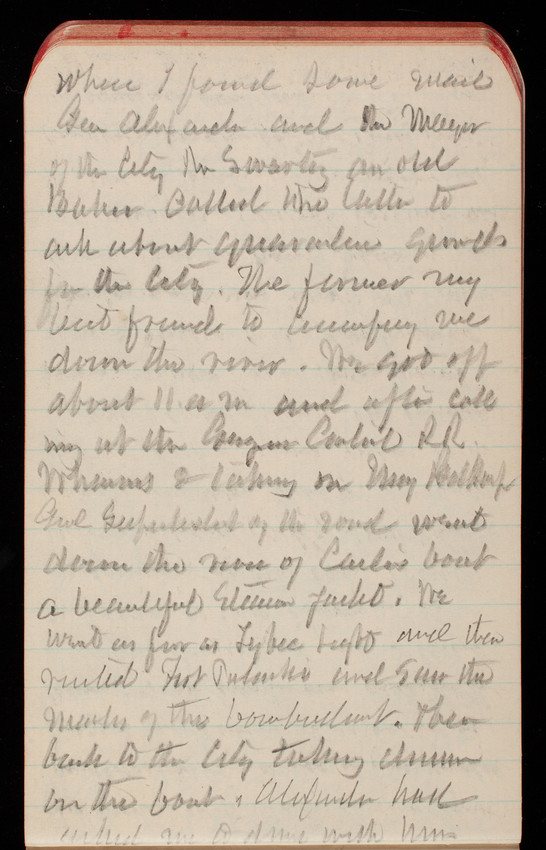 where I found some mail
Gen Alexander and the Mayor
of the City Mr Swartz an old
Baker. Called the latter to
ask about quarantine grounds
for the City. The former my
best friend to accompany me
down the river. We got off
about 11 a m and after call
ing at the Central RR
Wharves & taking on
Genl Supertendent of the road went
down the river of boat
a beautiful Steam Yacht. We
went as far as Tybee Light and then
visited Fort Pulaski and saw the
marks of the bombardment. Then
back to the City taking dinner
on the boat. Alexander had
asked me to dine with him